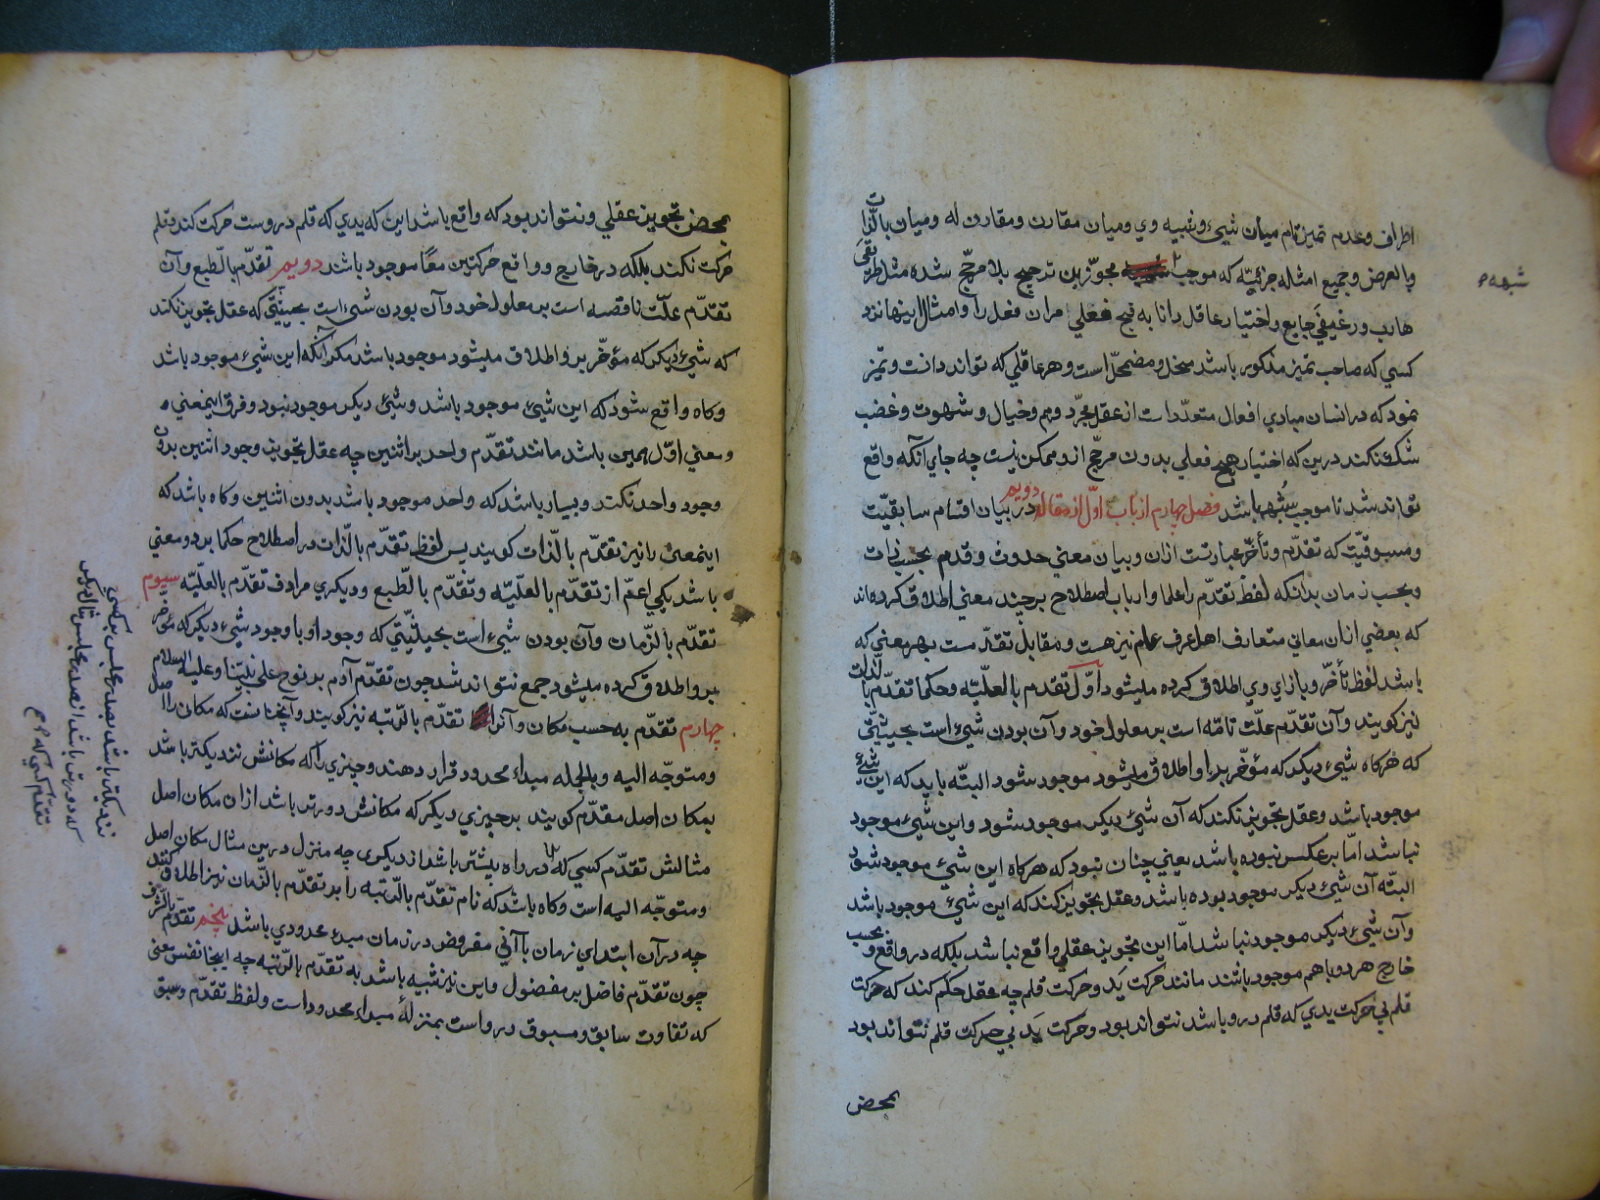 اطراف وعدم تميز تام ميان شيئ و شبيه وي وميان مقارن ومقارن له وميان بالذات
وبالعرض وجميع امثله جزئيّه كه موجب مجوّزين ترجيح بلا مرجّح شده مثل طريقى
هارب ورغيفي جايع واختيار عاقل دانا به قبح فعلي مران فعل را وامثال اينها نزد
كسي كه صاحب تميز مذكور باشد منحل و مضمحلّ است وهر عاقلي كه تواند دانت وتميز
نمود كه در انسان مبادي افعال متعدّداست از عقل مجرّد و وهم وخيال و شهوت وغضب
شك نكند درين كه اختيار هيچ فعلي بدون مرجّح ازو ممكن نيست چه جاي آنكه واقع
تواند شد تا موجب شبهه باشد فصل چهارم از باب اوّل از مقاله دويم در بيان اقسام سابقيّت
ومسبوقيّت كه تقدّم وتأخّر عبارتست ازان وبيان معني حدوث وقدم بحسب ذات
وبحسب زمان بدانكه لفظ تقدّم را علما وارباب اصطلاح بر چند معني اطلاق كرده اند
كه بعضي ازان معاني متعارف اهل عرف عام نيز هست ومقابل تقدّمست بهر معني كه
باشد لفظ تأخّر وبازاي وي اطلاق كرده ميشود اوّل تقدم بالعليّه وحكما تقدّم بالذات
نيز كويند وآن تقدّم علّت تامّه است بر معلول خود وآن بودن شيئ است بحيثيّتي
كه هركاه شيئ ديكر كه مؤخّر بر او اطلاق ميشود موجود شود البتّه بايد كه اين شيئ
موجود باشد وعقل تجويز نكند كه آن شيئ ديكر موجود شود واين شيئ موجود
نباشد امّا بر عكس نبوده باشد يعني چنان نبود كه هركاه اين شيئ موجود شود
البتّه آن شيئ ديكر موجود بوده باشد وعقل تجويز كند كه اين شيئ موجود باشد
وآن شيئ ديكر موجود نباشد امّا اين تجويز عقلي واقع نباشد بلكه در واقع و بحسب
خارج هر دو باهم موجود باشند مانند حركت يَد وحركت قلم چه عقل حكم كند كه حركت
قلم بي حركت يدي كه قلم درو باشد نتواند بود وحركت يد بي حركت قلم نتواند بود
بمحض
شبهه
بمحض تجويز عقلي ونتواند بود كه واقع باشد اين كه يدي كه قلم دروست حركت كند وقلم
حركت نكند بلكه در خارج وواقع حركتين معًا موجود باشد دويم تقدّم بالطّبع وآن
تقدّم علّت ناقصه است بر معلول خود وآن بودن شيئ است بحيثيّتي كه عقل تجويز نكند
كه شيئ ديكر كه مؤخّر برو اطلاق ميشود موجود باشد مكر آنكه اين شيئ موجود باشد
وكاه واقع شود كه اين شيئ موجود باشد وشيئ ديكر موجود نبود وفرق اينمعني
ومعني اوّل همين باشد مانند تقدّم واحد بر اثنين چه عقل تجويز وجود اثنين بدون
وجود واحد نكند وبسيار باشد كه واحد موجود باشد بدون اثنين وكاه باشد كه
اينمعني را نيز تقدّم بالذّات كويند پس لفظ تقدّم بالذّات در اصطلاح حكما بر دو معني
باشد يكي اعمّ از تقدّم بالعليّه وتقدّم بالطّبع وديكري مرادف تقدّم بالعليّه سيوم
تقدّم بالزّمان وآن بودن شيئ است بحيثيّتي كه وجود او با وجود شيئ ديكر كه مؤخر
برو اطلاق كرده ميشود جمع نتواند شد چون تقدّم آدم بر نوح على نبيّنا وعليه السلام
چهارم تقدّم به حسب مكان وآنرا تقدّم بالرّتبه نيز كويند وآنچنانست كه مكان را اصل
ومتوجّه اليه وبالجمله مبداء محدود قرار دهند وچيزي را كه مكانش نزديكتر باشد
بمكان اصل مقدّم كويند بر چيزي ديكر كه مكانش دورتر باشد ازان مكان اصل
مثالش تقدّم كسي كه در راه پيشتر باشد از ديكرى چه منزل درين مثال مكان اصل
ومتوجّه اليه است وكاه باشد كه نام تقدّم بالرّتبه را بر تقدّم بالزّمان نيز اطلاق كنند
چه در آن ابتداي زمان يا آني مفروض در زمان مبدء محدودي باشد پنجم تقدّم بالشّرف
چون تقدّم فاضل بر مفضول واين نيز شبيه باشد به تقدّم بالرّتبه چه اينجا نفس معنى
كه تفاوت سابق ومسبوق در واست بمنزلهٔ مبداء محدود است ولفظ تقدّم وسبق
نزديكتر باشد بصدر مجلس بر كسي
كه دورتر باشد از صدر مجلس مثال ديكر
تقدّم كسي كه